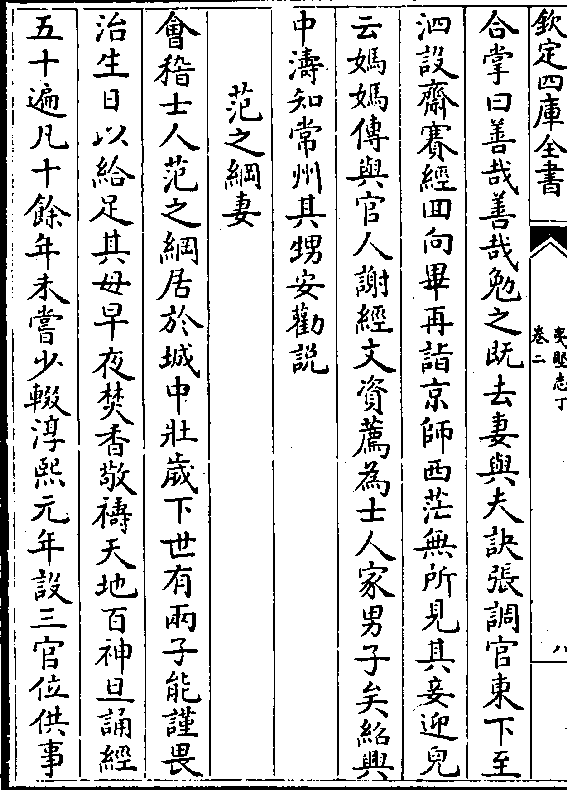 欽定四庫全書
夷堅志丁
卷二
八
合掌曰善哉善哉勉之既去妻與夫訣張調官東下至
泗設齋賽經回向畢再詣京師西茫無所見其妾迎兒
云媽媽傳與官人謝經文資薦為士人家男子矣紹興
中濤知常州其甥安勸説
范之綱妻
會稽士人范之綱居於城中壯歲下世有兩子能謹畏
治生日以給足其母早夜焚香敬禱天地百神旦誦經
五十遍凡十餘年未嘗少輟淳熙元年設三官位供事